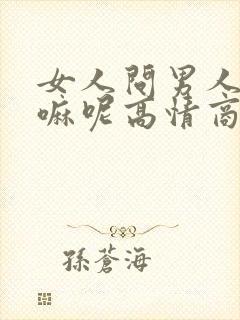 女人問男人
嘛呢高情商
孫蒼海